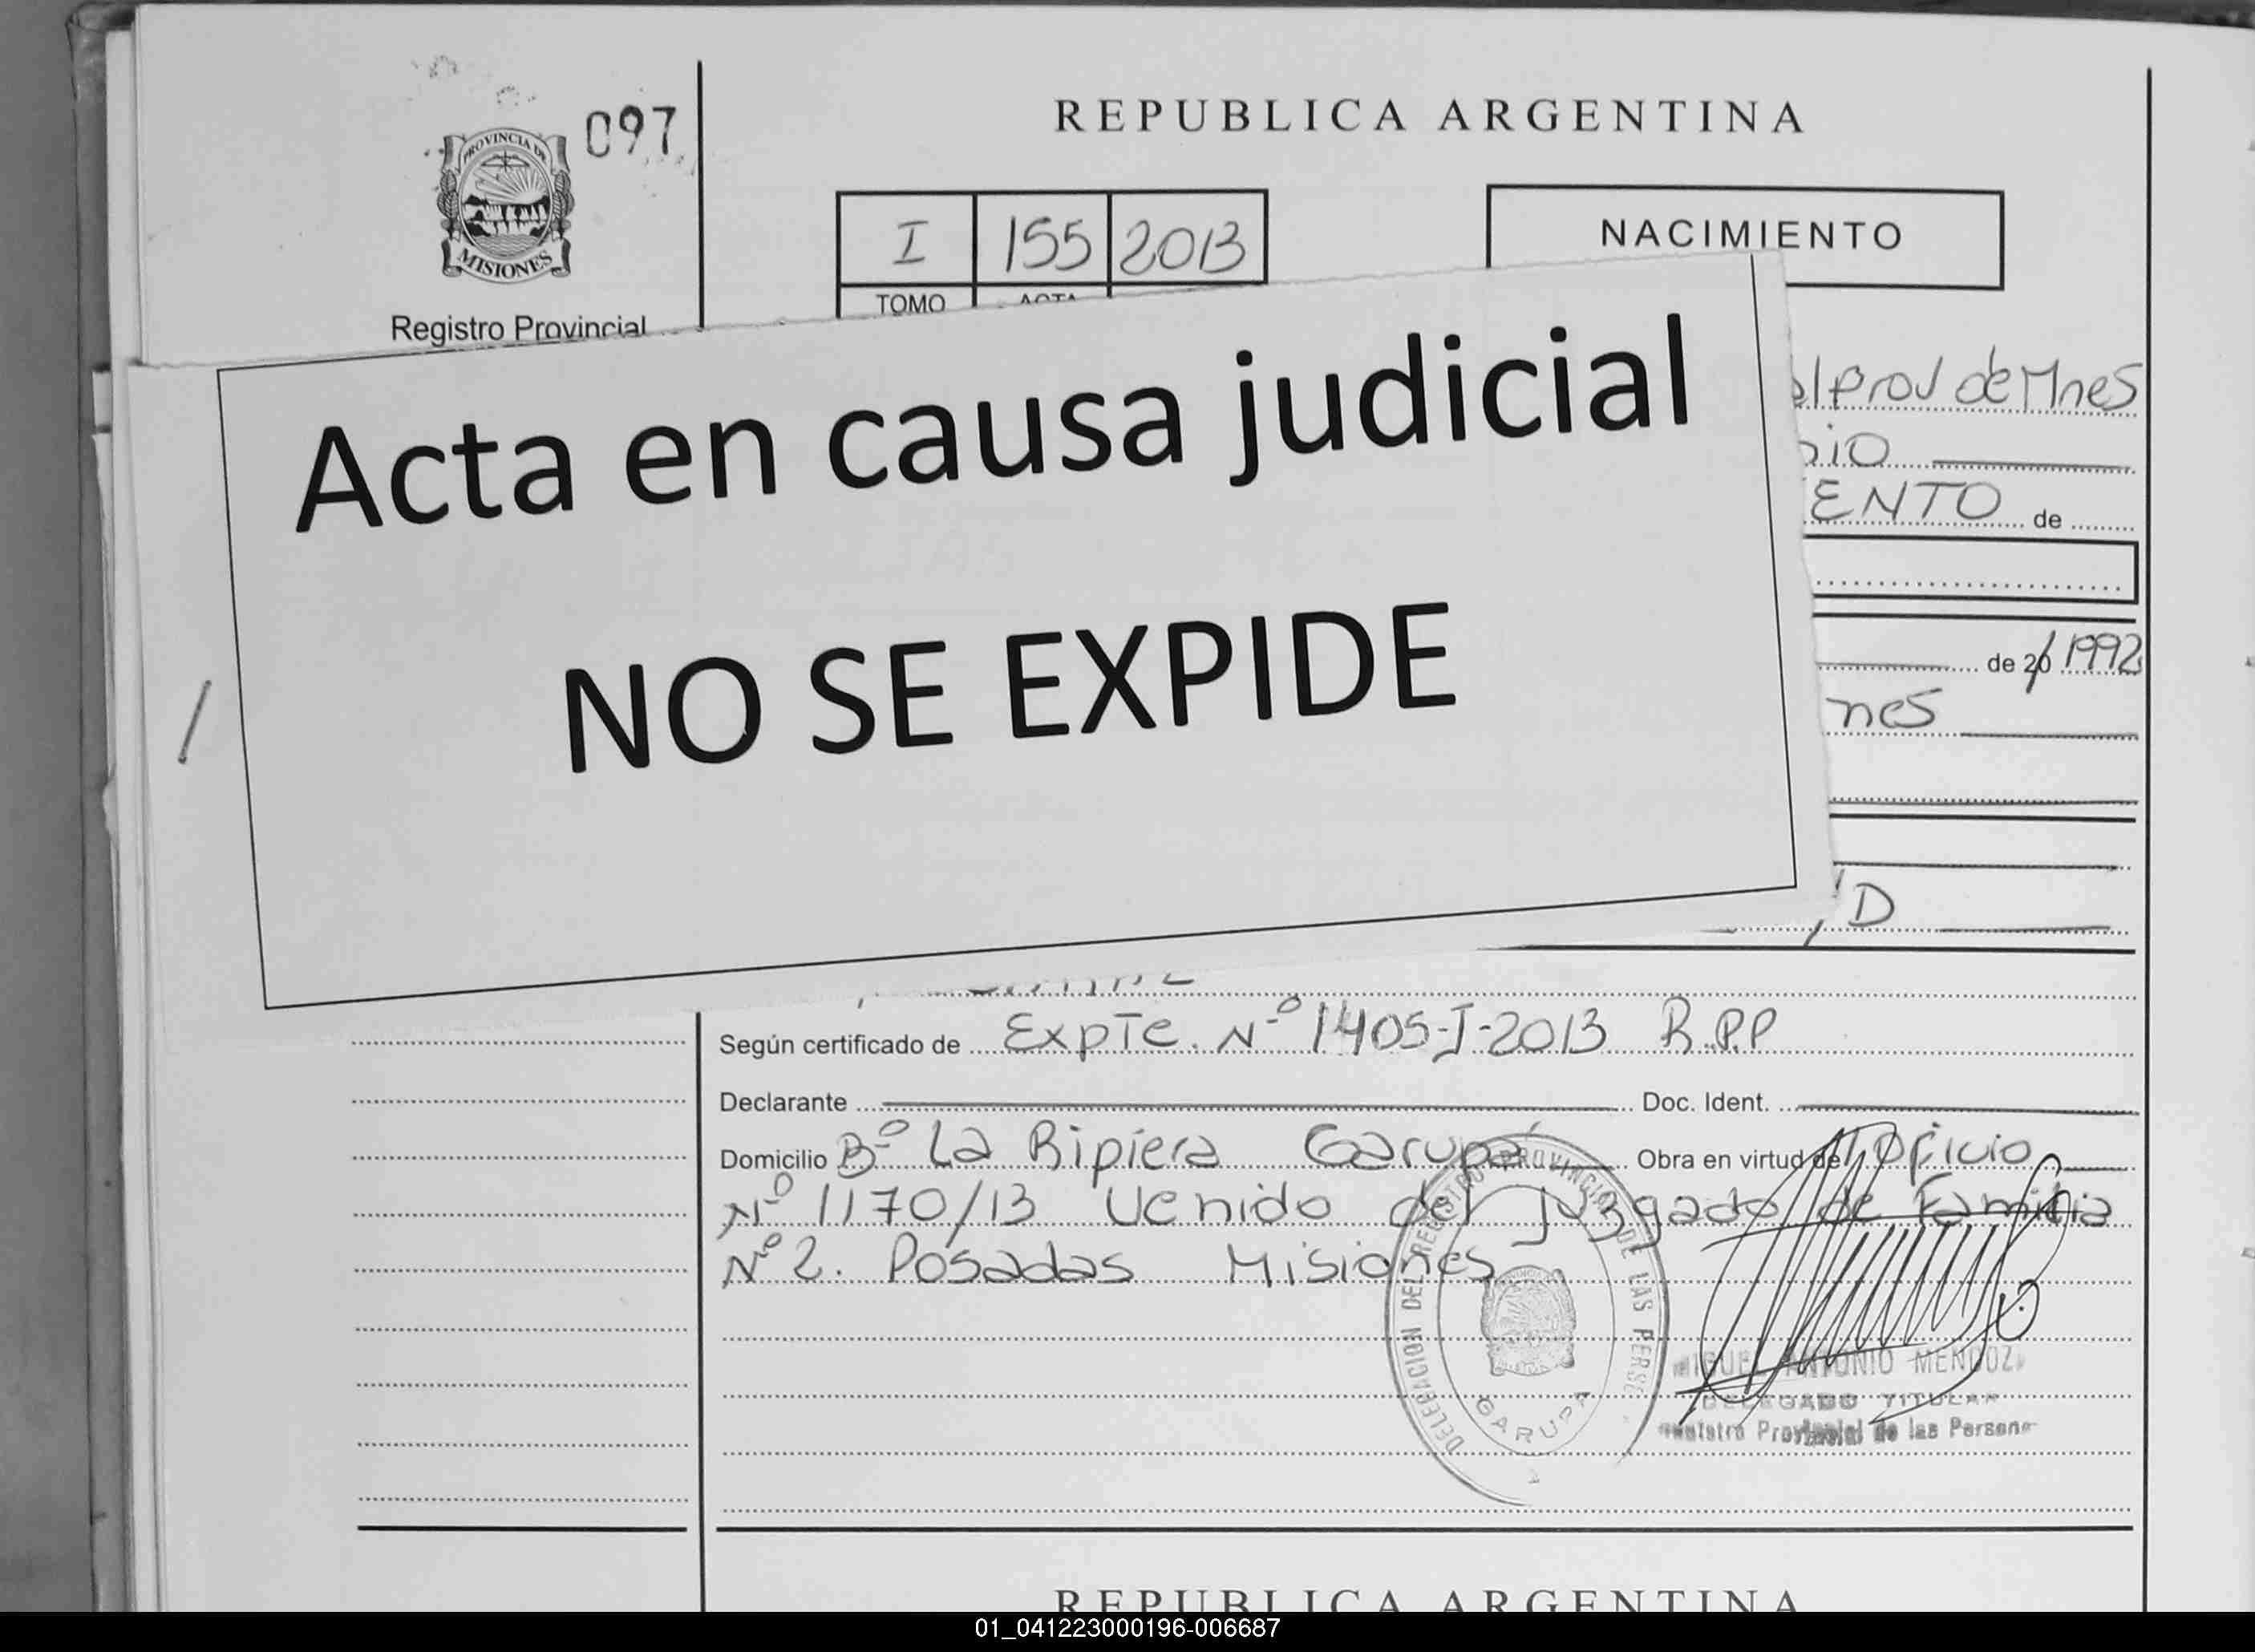 097
REPUBLICA ARGENTINA
PROVINCIA DE
MISIONES
I 155 2013
NACIMIENTO
TOMO ACTA
Registro Provincial
Acta en causa judicial
NO SE EXPIDE
Prov de Mnes
ENTO de
de 20 1992
nes
D
Según certificado de Expte. Nº 1405-I-2013 R.P.P
Declarante Doc. Ident.
Domicilio Bº La Ripiera Garupá Obra en virtud de Oficio
Nº 1170/13 Venido del Juzgado de Familia
Nº 2. Posadas Misiones
DELEGACION DEL REGISTRO PROVINCIAL DE LAS PERSO
GARUPA
MIGUEL ANTONIO MENDOZA
DELEGADO TITULAR
Registro Provincial de las Persona
REPUBLICA ARGENTINA
01_041223000196-006687